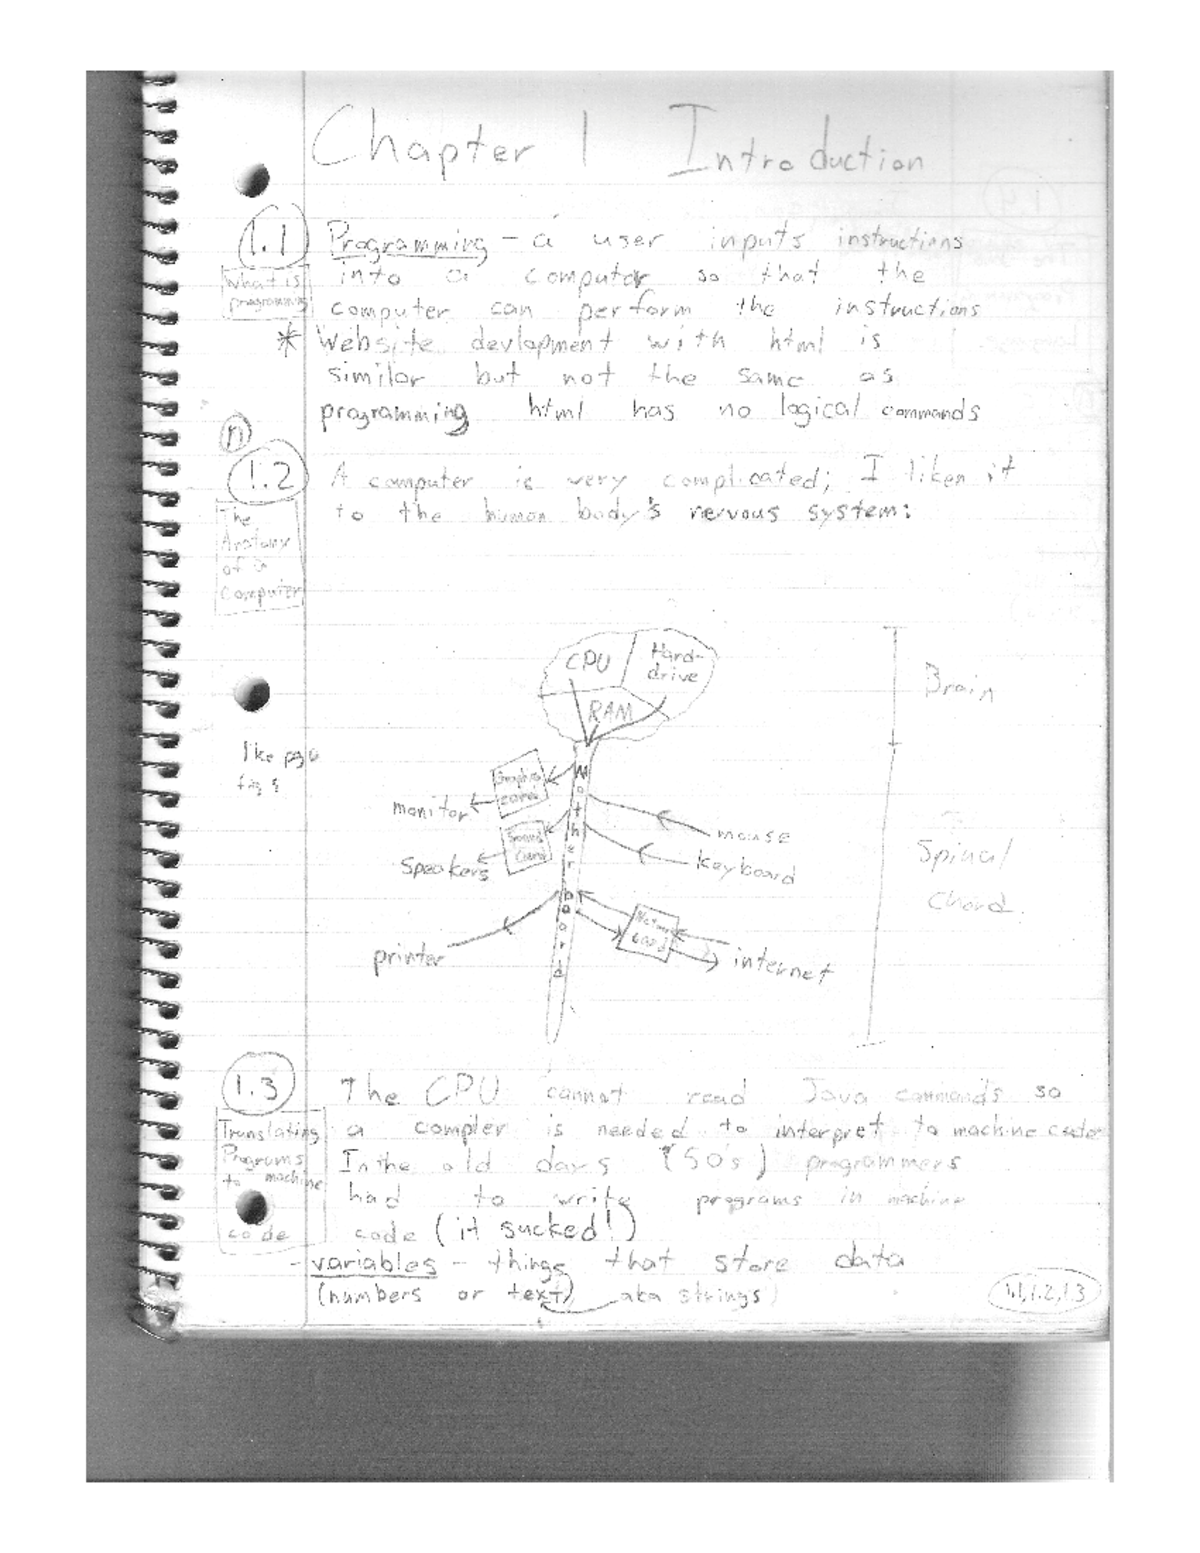 Chapter 1 Introduction
1.1 Programming - a user inputs instructions
What is programming
into a computer so that the
computer can perform the instructions
* Website devlopment with html is
similar but not the same as
programming html has no logical commands
n
1.2 A computer is very complicated; I liken it
to the human body's nervous system:
The
Anatomy
of a
Computer
CPU
Hard-
drive
RAM
Brain
like pg 6
fig 5
Motherboard
Graphics
card
monitor
Sound
Card
Speakers
mouse
keyboard
Spinal
Chord
printer
card
internet
1.3 The CPU cannot read Java commands so
Translating
Programs
to machine
code
a compiler is needed to interpret to machine code
In the old days (50's) programmers
had to write programs in machine
code (it sucked!)
- variables - things that store data
(numbers or text) aka strings)
1.1, 1.2, 1.3